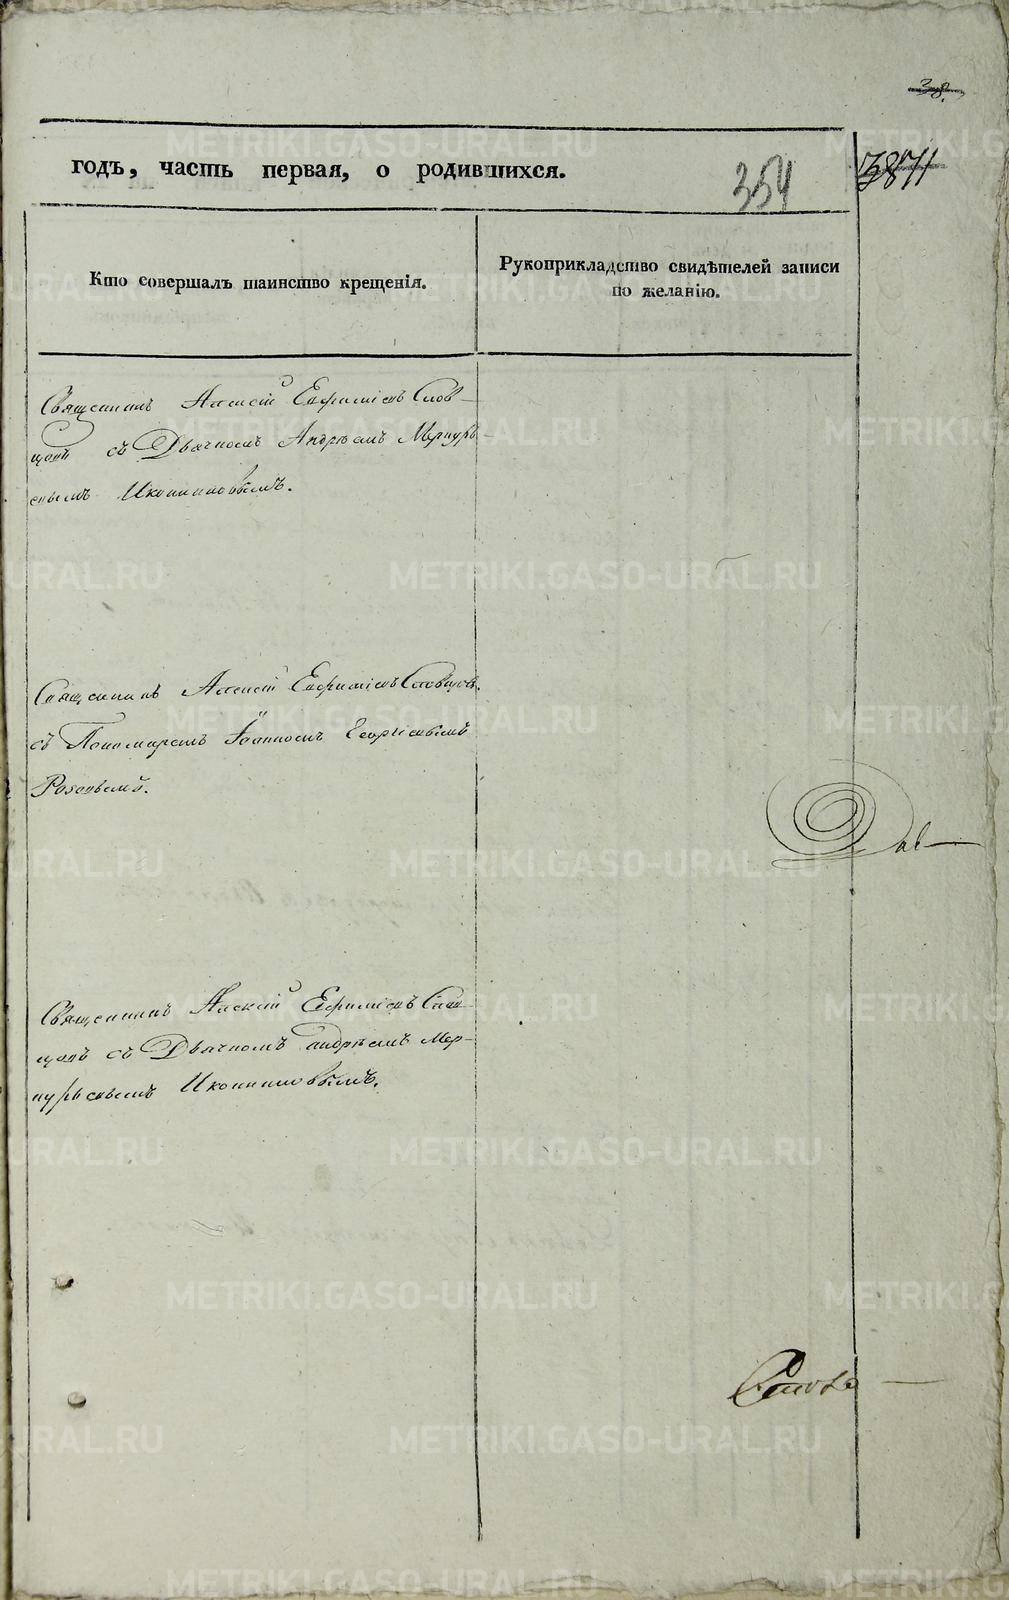 38.
годъ, часть первая, о родившихся.
354
3871
Кто совершалъ таинство крещенія.
Рукоприкладство свидѣтелей записи
по желанію.
Священникъ Алексій Евфиміевъ Слов-
цовъ съ Дьячкомъ Андреемъ Меркурь-
евымъ Иконниковымъ.
Священникъ Алексій Евфиміевъ Словцовъ
съ Пономаремъ Іоанномъ Георгіевымъ
Розовымъ.
Священникъ Алексій Евфиміевъ Слов-
цовъ съ Дьячкомъ Андреемъ Мер-
курьевымъ Иконниковымъ.
METRIKI.GASO-URAL.RU